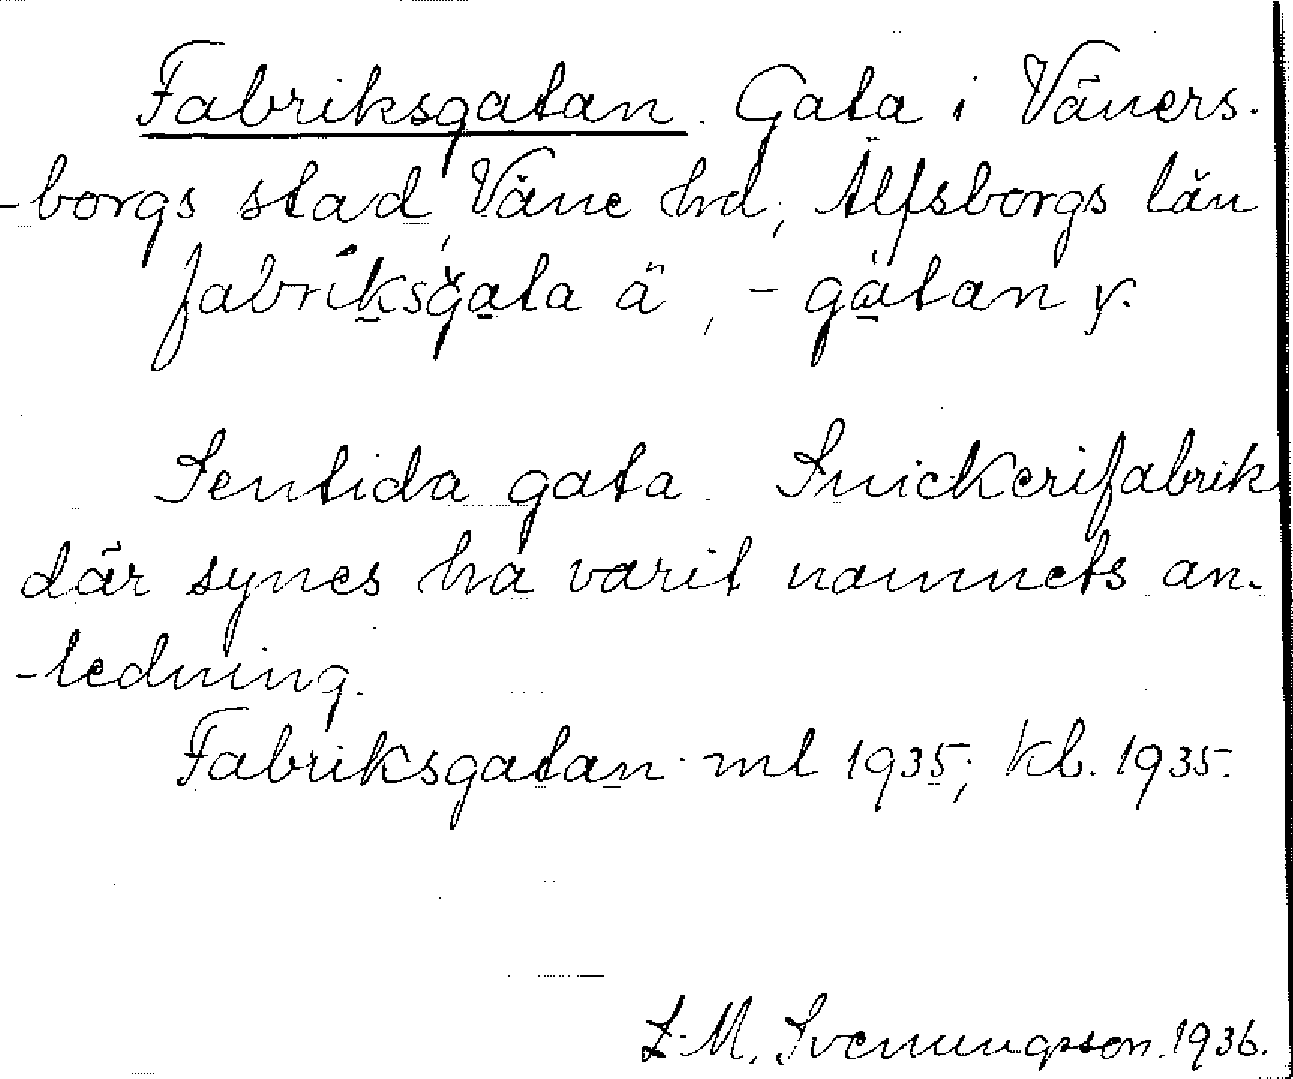 Fabriksgatan. Gata i Väners-
-borgs stad, Väne hd; Älfsborgs län
fabriksgata ä, - gatan y.
Sentida gata. Snickerifabrik
där synes ha varit namnets an-
-ledning.
Fabriksgatan ml 1935; kb. 1935.
L. M. Svenungsson. 1936.